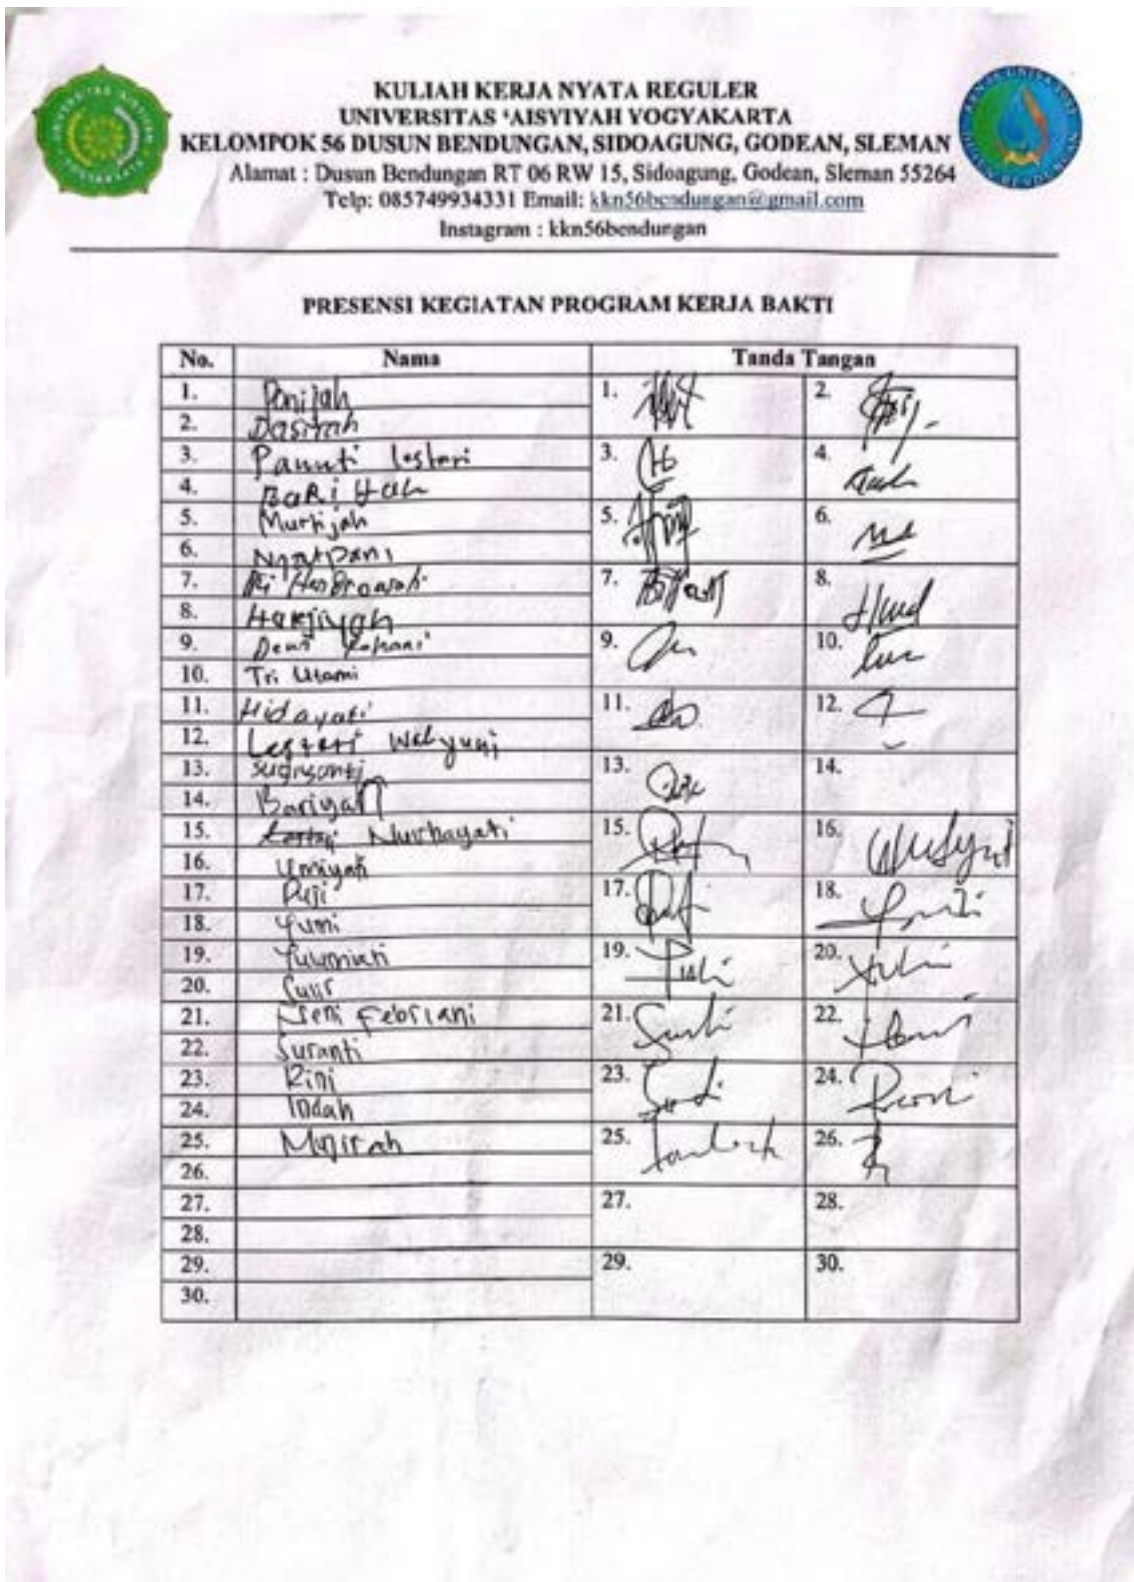 KULIAH KERJA NYATA REGULER
UNIVERSITAS 'AISYIYAH YOGYAKARTA
KELOMPOK 56 DUSUN BENDUNGAN, SIDOAGUNG, GODEAN, SLEMAN
Alamat : Dusun Bendungan RT 06 RW 15, Sidoagung, Godean, Sleman 55264
Telp: 085749934331 Email: kkn56bendungan@gmail.com
Instagram : kkn56bendungan
PRESENSI KEGIATAN PROGRAM KERJA BAKTI
No. Nama Tanda Tangan
1. Ponijah 1. 2.
2. Dasirah
3. Panuti Lestari 3. 4.
4. BaRiyah
5. Murtijah 5. 6.
6. Ngatpani
7. 7. 8.
8. Harjiyah
9. Dewi 9. 10.
10. Tri Utami
11. Hidayati 11. 12.
12. Lestari Wahyuni
13. 13. 14.
14. Bariyah
15. Nurhayati 15. 16.
16. Umiyah
17. Puji 17. 18.
18. Yumi
19. Yuwmiati 19. 20.
20.
21. Febriani 21. 22.
22. Suranti
23. Rini 23. 24.
24. Indah
25. Mujirah 25. 26.
26.
27. 27. 28.
28.
29. 29. 30.
30.